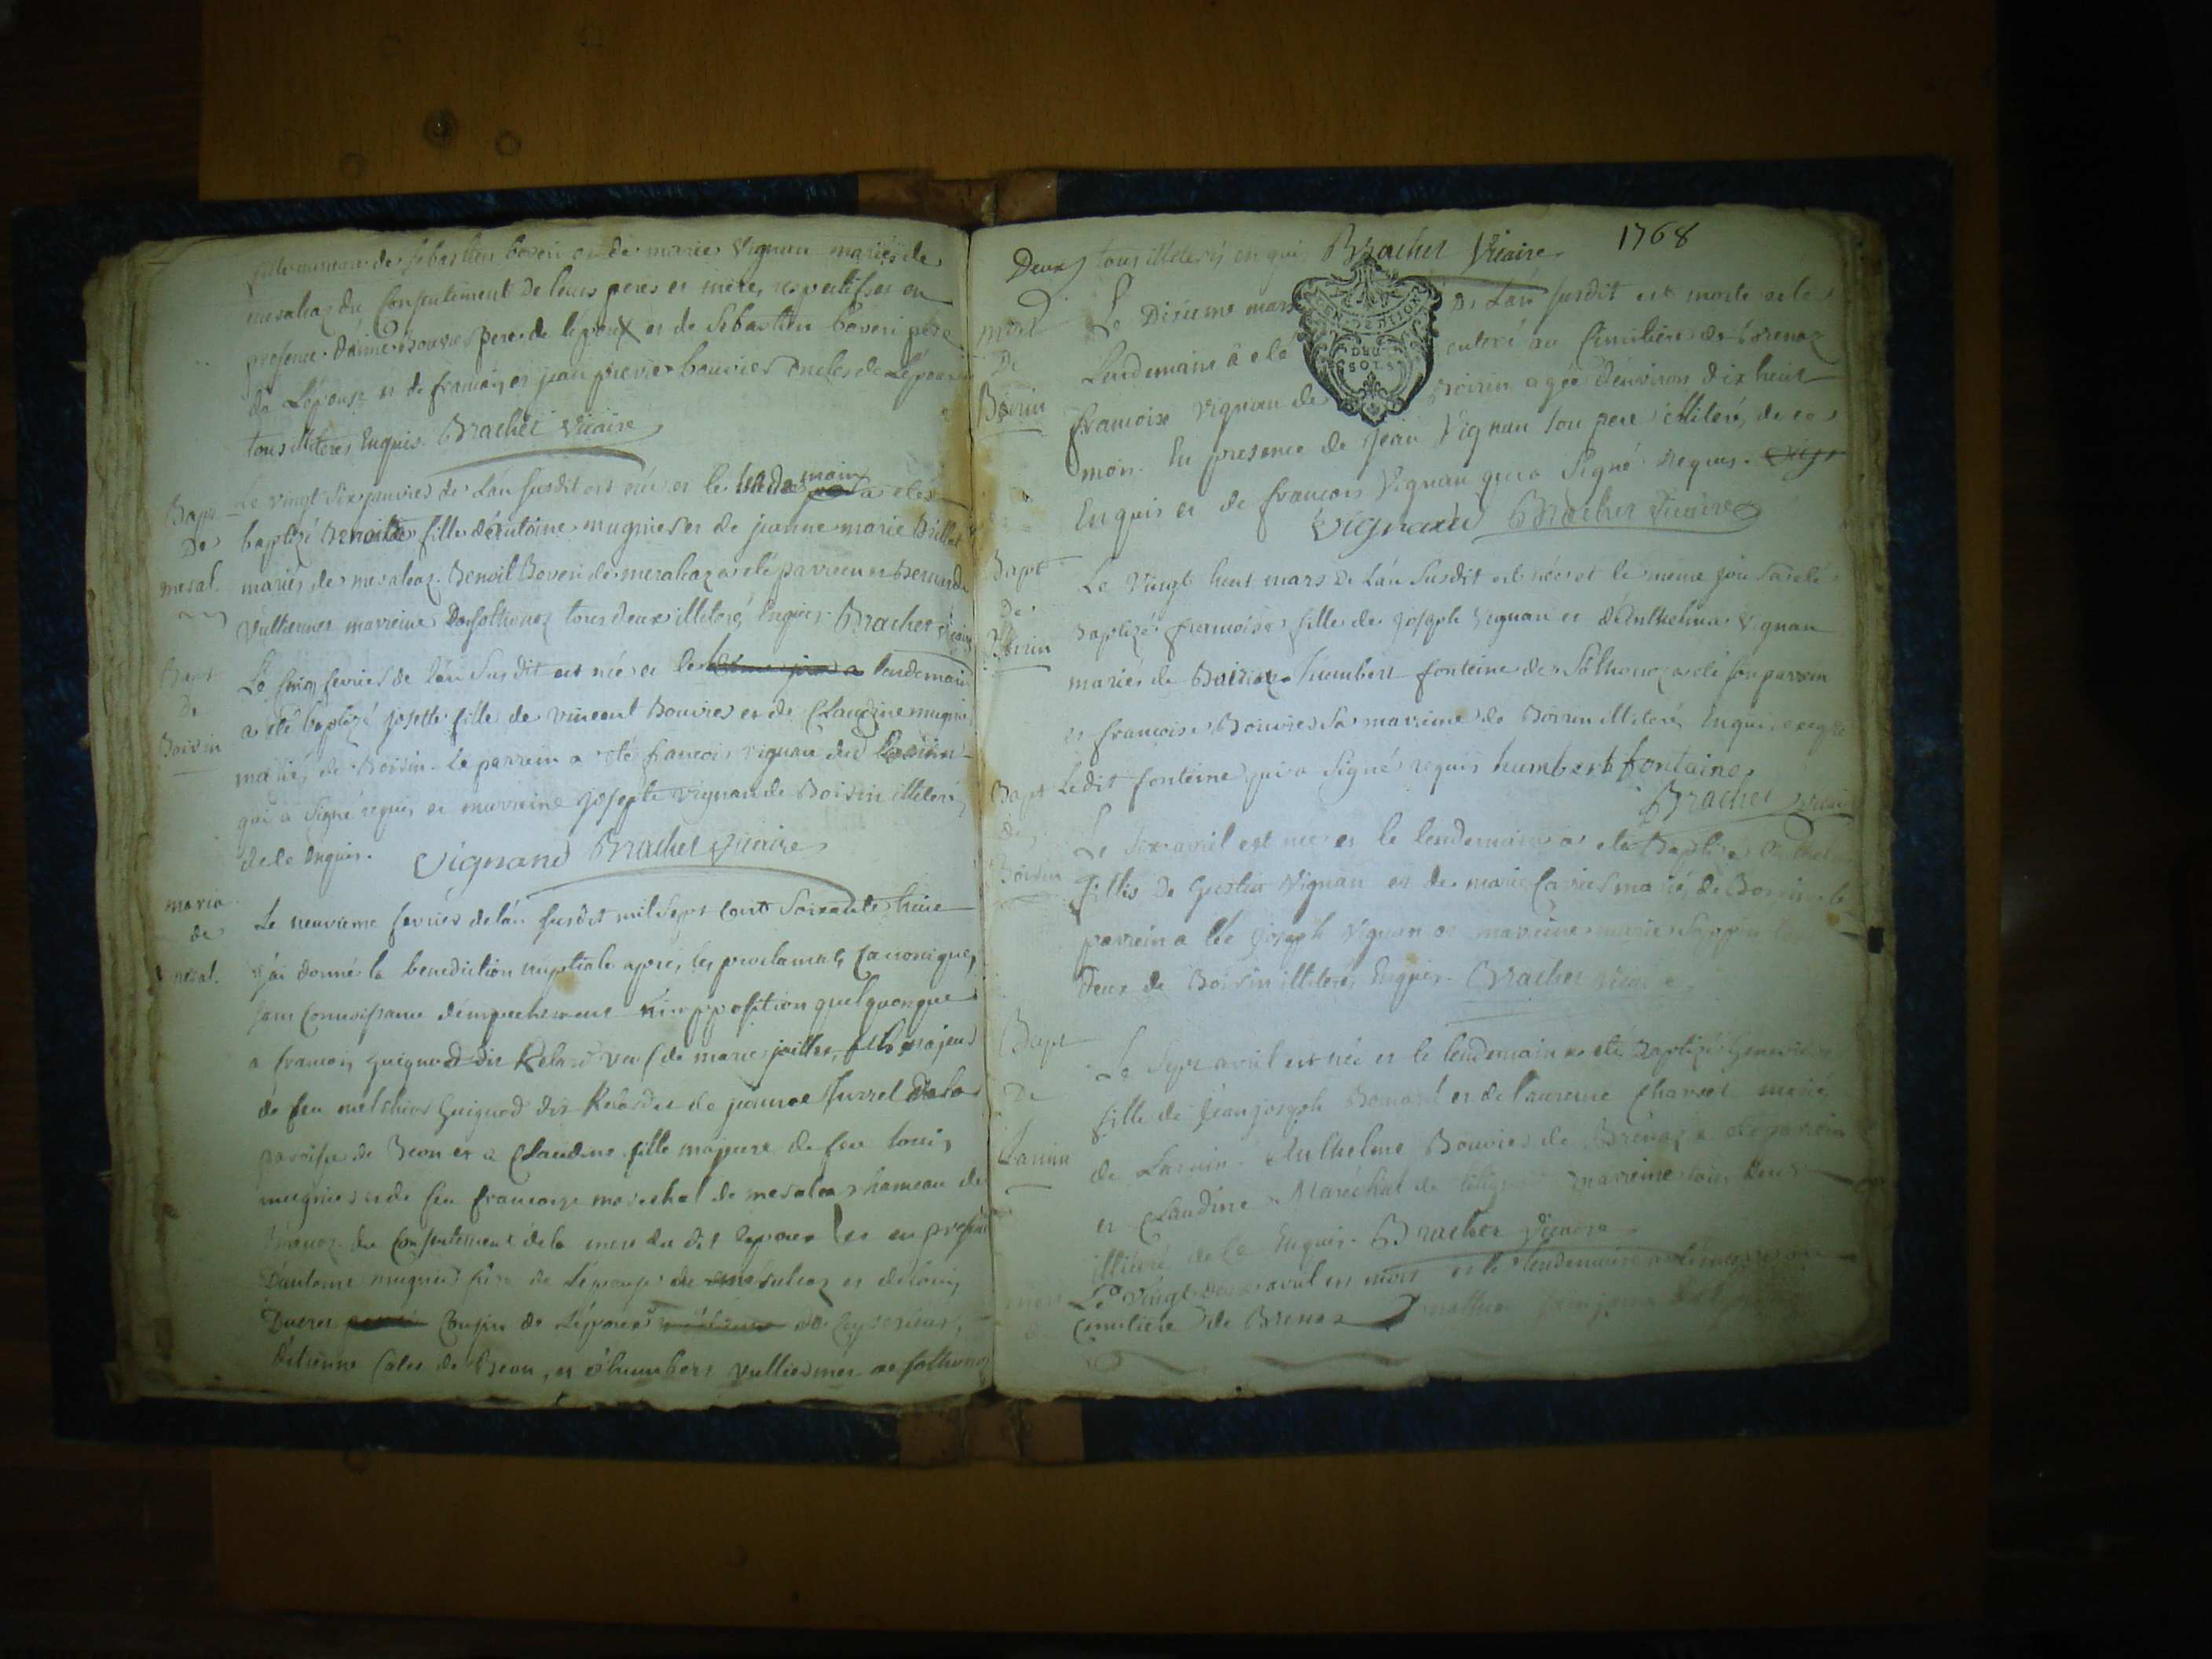 fille mineure de Sebastien boveri et de marie Vignan mariés de
mesalaz du Consentement de leurs peres et mere, respectifs et en
presence d'aimé Bouvier pere de lepoux et de Sebastien Boveri pere
de L'épouse et de francois et jean previer bouvier oncles de Lépoux
tous illiteres Enquis. Brachet Vicaire
Bapt
De
mesal.
Le vingt Six janvier de L'an susdit est née et le lendemain a eté
baptizé Benoite fille d'antoine mugnier et de jeanne marie Billiet
mariés de mesalaz. Benoit Boveri de mesalaz a eté parrein et Bernarde
Vulliermet marreine De sothonoz tous deux illiteré Enquis. Brachet vicaire
Bapt
De
Boisin
Le Cinq fevrier de l'an Susdit est née et le lendemain
a eté baptizé josette fille de vincent Bouvier et de Claudine mugnier
mariés de Boisin. le parrein a eté francois vignan du
qui a Signé requis et marreine josepte vignan de Boisin illiteré,
de ce enquis. Vignand Brachet Vicaire
maria
de
mesal.
Le neuvieme fevrier de l'an susdit mil Sept Cent Soixante huit
j'ai donné la benediction nuptiale apres les proclamats Canonique,
sans Connoissance d'empechement ni opposition quelquonque
a francois guignod dit Kelard veuf de marie jaillet, fils majeur
de feu melchior Guignod dit Kelard et de jeanne Jurret De la
paroisse de Beon et a Claudine fille majeure de feu louis
mugnier et de feu francoise marechal de mesalaz hameau de
Brenaz. du Consentement de la mere du dit lepoux et en presence
D'antoine mugnier frere de L'epouse de mesalaz et de louis
Ducret Cousin de L'epoux de Ceyserieu,
d'etienne Calet de Beon, et d'humbert vulliermet de sothonoz
Deux tous illeterés enquis Brachet Vicaire 1768
mort
De
Boisin
Le Disieme mars De L'an susdit est morte et le
Lendemain à eté enteré au Cimitière de brenaz
francoise Vignan de Boisin agée d'environ dix huit
mois. En presence de jean Vignan son pere illiteré, de ce
Enquis et de francois Vignan qui a Signé Requis.
Vignand Brachet Vicaire
GEN. DE DIJON
DEUX
SOLS
Bapt
De
Boisin
Le Vingt huit mars De L'an Susdit est née et le meme jour a eté
Baptizé francoise fille de joseph Vignan et d'Anthelma Vignan
mariés de Boisin. humbert fonteine de Sothonoz a eté son parrein
et francoise Bouvier Sa marreine de Boisin illiteré, Enquis, excepté
Ledit fonteine qui a Signé requis humbert fontaine
Brachet vicaire
Bapt
de
Boisin
Le Six avril est née et le lendemain a eté Baptizé
fillie De Vignan et de marie mariés de Boisin. le
parrein a eté joseph Vignan et marreine marie
Deux de Boisin illiteré, Enquis. Brachet vicaire
Bapt
De
Larnin
Le Sept avril est née et le lendemain a eté Baptizé Genevieve
fille de jean joseph Bomard et de laurence Charvet mariés
de Larnin. Anthelme Bouvier de Brenaz a eté parrein
et Claudine Maréchal de marreine tous deux
illiteré de ce Enquis. Brachet Vicaire
mort
Le Vingt avril est mort et le lendemain a eté
Cimitière de Brenaz